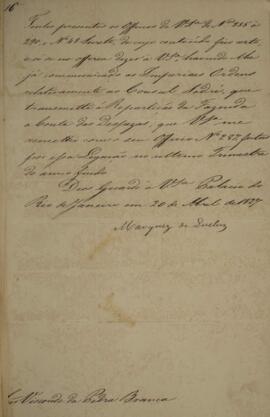 16
Tenho presentes os Officios de V.Sª de Nº 285 à
290, e Nº 41 Secreto, de cujo contendo fico
e se me offerece dizer a V.Sª, havendo
já communicado as Imperiaes Ordens
relativamente ao Consul
transmetti à Repartição da Fazenda
a Conta das Despezas, que V.Sª me
remetteo com o seu Officio Nº 287 feitas
por essa Legação no ultimo Trimestre
do anno findo.
Deos Guarde a V.Sª Palacio do
Rio de Janeiro em 20 de Abril de 1827
Marquez de Queluz
Snr Visconde da Pedra Branca